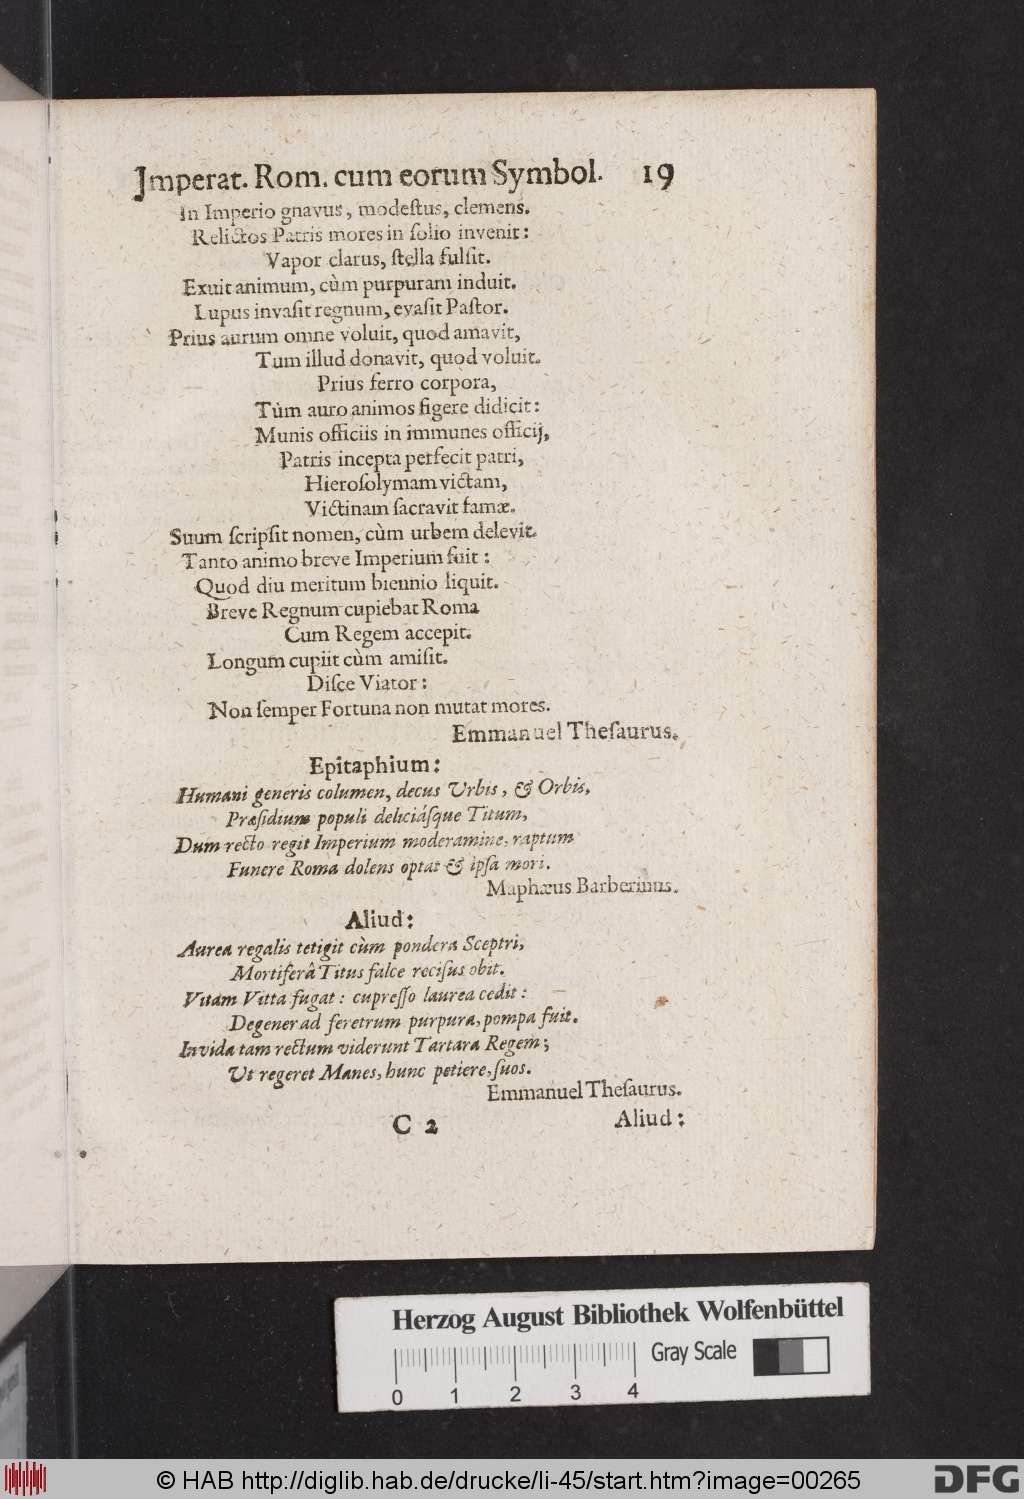 Imperat. Rom. cum eorum Symbol. 19
In Imperio gnavus, modeſtus, clemens.
Relictos Patris mores in ſolio invenit:
Vapor clarus, ſtella fulſit.
Exuit animum, cùm purpuram induit.
Lupus invaſit regnum, evaſit Paſtor.
Prius aurum omne voluit, quod amavit,
Tum illud donavit, quod voluit.
Prius ferro corpora,
Tùm auro animos figere didicit:
Munis officiis in immunes officij,
Patris incepta perfecit patri,
Hieroſolymam victam,
Victinam ſacravit famæ.
Suum ſcripſit nomen, cùm urbem delevit.
Tanto animo breve Imperium fuit:
Quod diu meritum biennio liquit.
Breve Regnum cupiebat Roma
Cum Regem accepit.
Longum cupiit cùm amiſit.
Diſce Viator:
Non ſemper Fortuna non mutat mores.
Emmanuel Theſaurus.
Epitaphium:
Humani generis columen, decus Urbis, & Orbis,
Præſidium populi deliciáſque Titum,
Dum recto regit Imperium moderamine, raptum
Funere Roma dolens optat & ipſa mori.
Maphæus Barberinus.
Aliud:
Aurea regalis tetigit cùm pondera Sceptri,
Mortiferâ Titus falce reciſus obit.
Vitam Vitta fugat: cupreſſo laurea cedit:
Degener ad feretrum purpura, pompa fuit.
Invida tam rectum viderunt Tartara Regem;
Ut regeret Manes, hunc petiere, ſuos.
Emmanuel Theſaurus.
C 2 Aliud:
Herzog August Bibliothek Wolfenbüttel
Gray Scale
0 1 2 3 4
© HAB http://diglib.hab.de/drucke/li-45/start.htm?image=00265
DFG